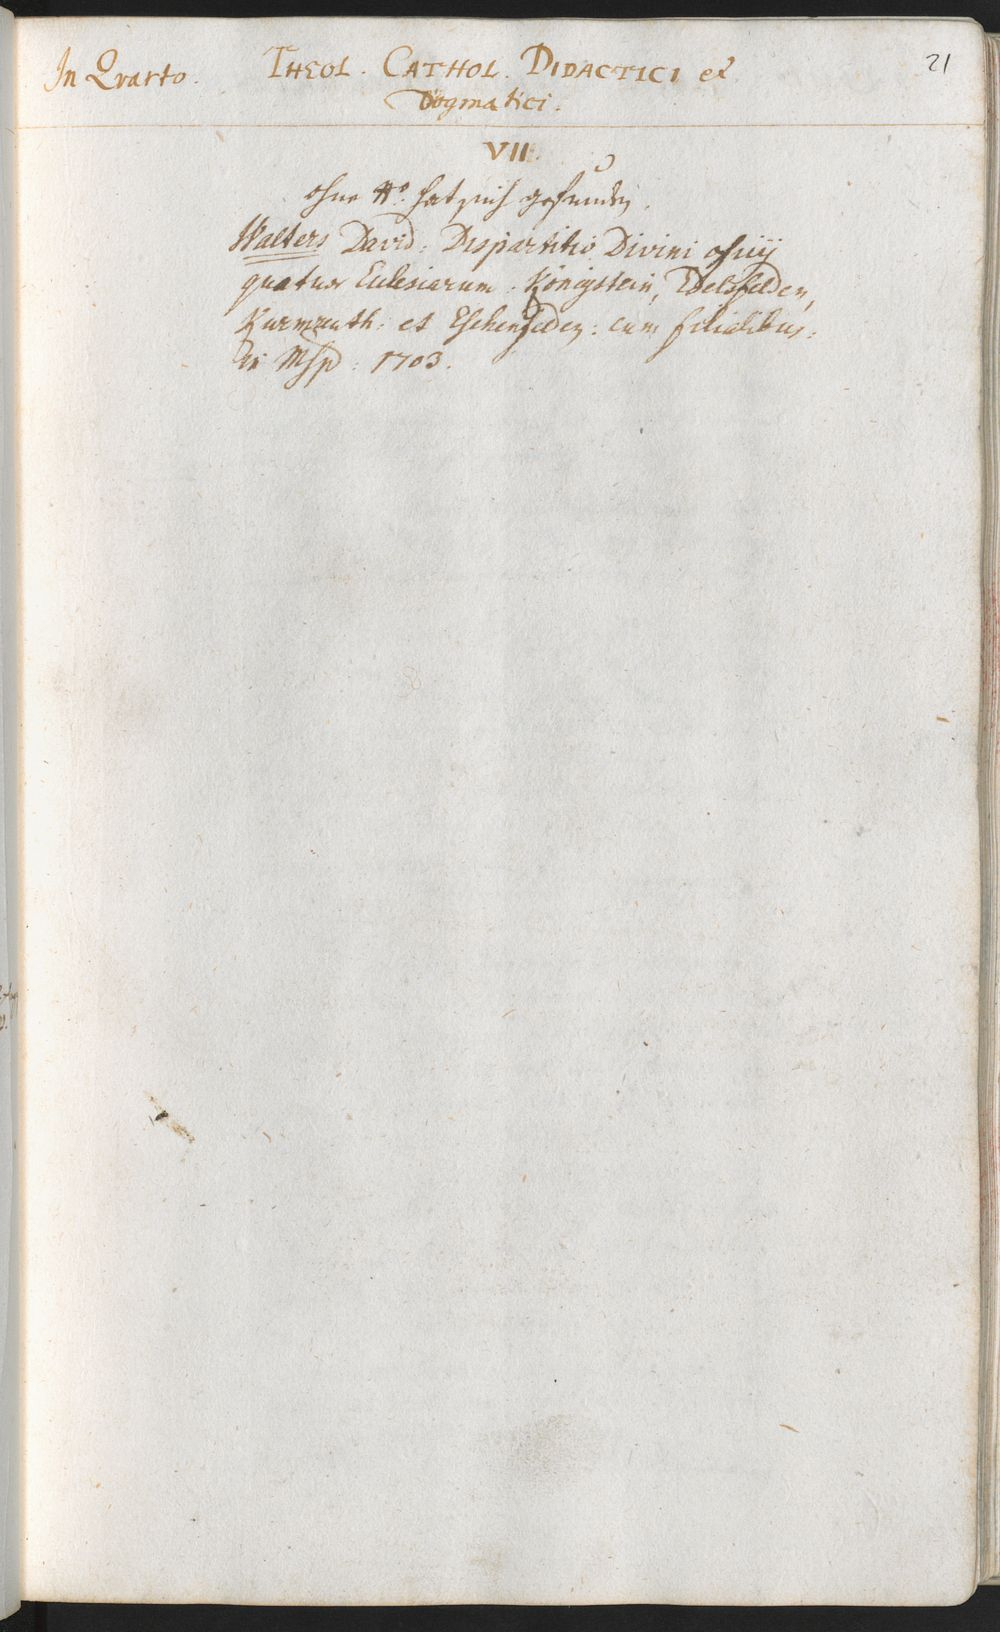 In Qvarto.
THEOL. CATHOL. DIDACTICI et
Dogmatici.
21
VII.
ohne No. hat sich gefunden.
Walters David: Dispartitio Divini officij
quatuor Ecclesiarum: Königstein, Edelsfelden,
Kurmreuth: et Eschenfelden: cum filialibus:
in Msp: 1703.